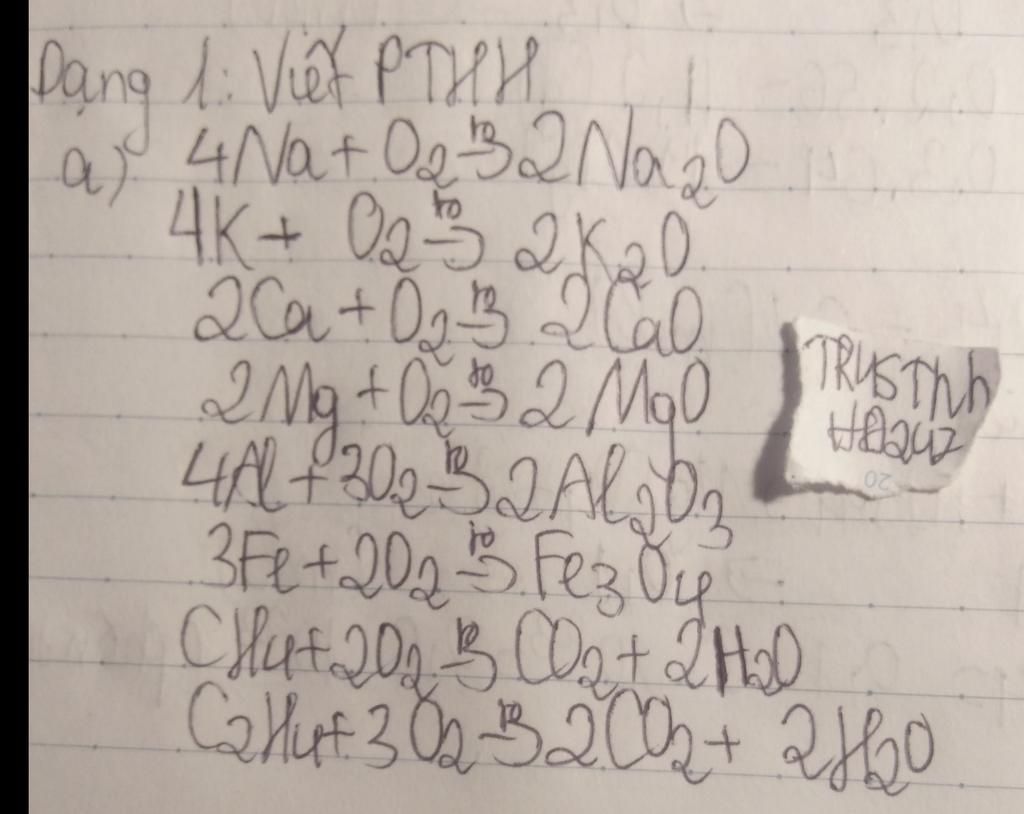 Dạng 1: Viết PTHH
a) 4Na + O2 t°→ 2Na2O
4K + O2 t°→ 2K2O
2Ca + O2 t°→ 2CaO
2Mg + O2 t°→ 2MgO
4Al + 3O2 t°→ 2Al2O3
3Fe + 2O2 t°→ Fe3O4
CH4 + 2O2 t°→ CO2 + 2H2O
C2H4 + 3O2 t°→ 2CO2 + 2H2O
20